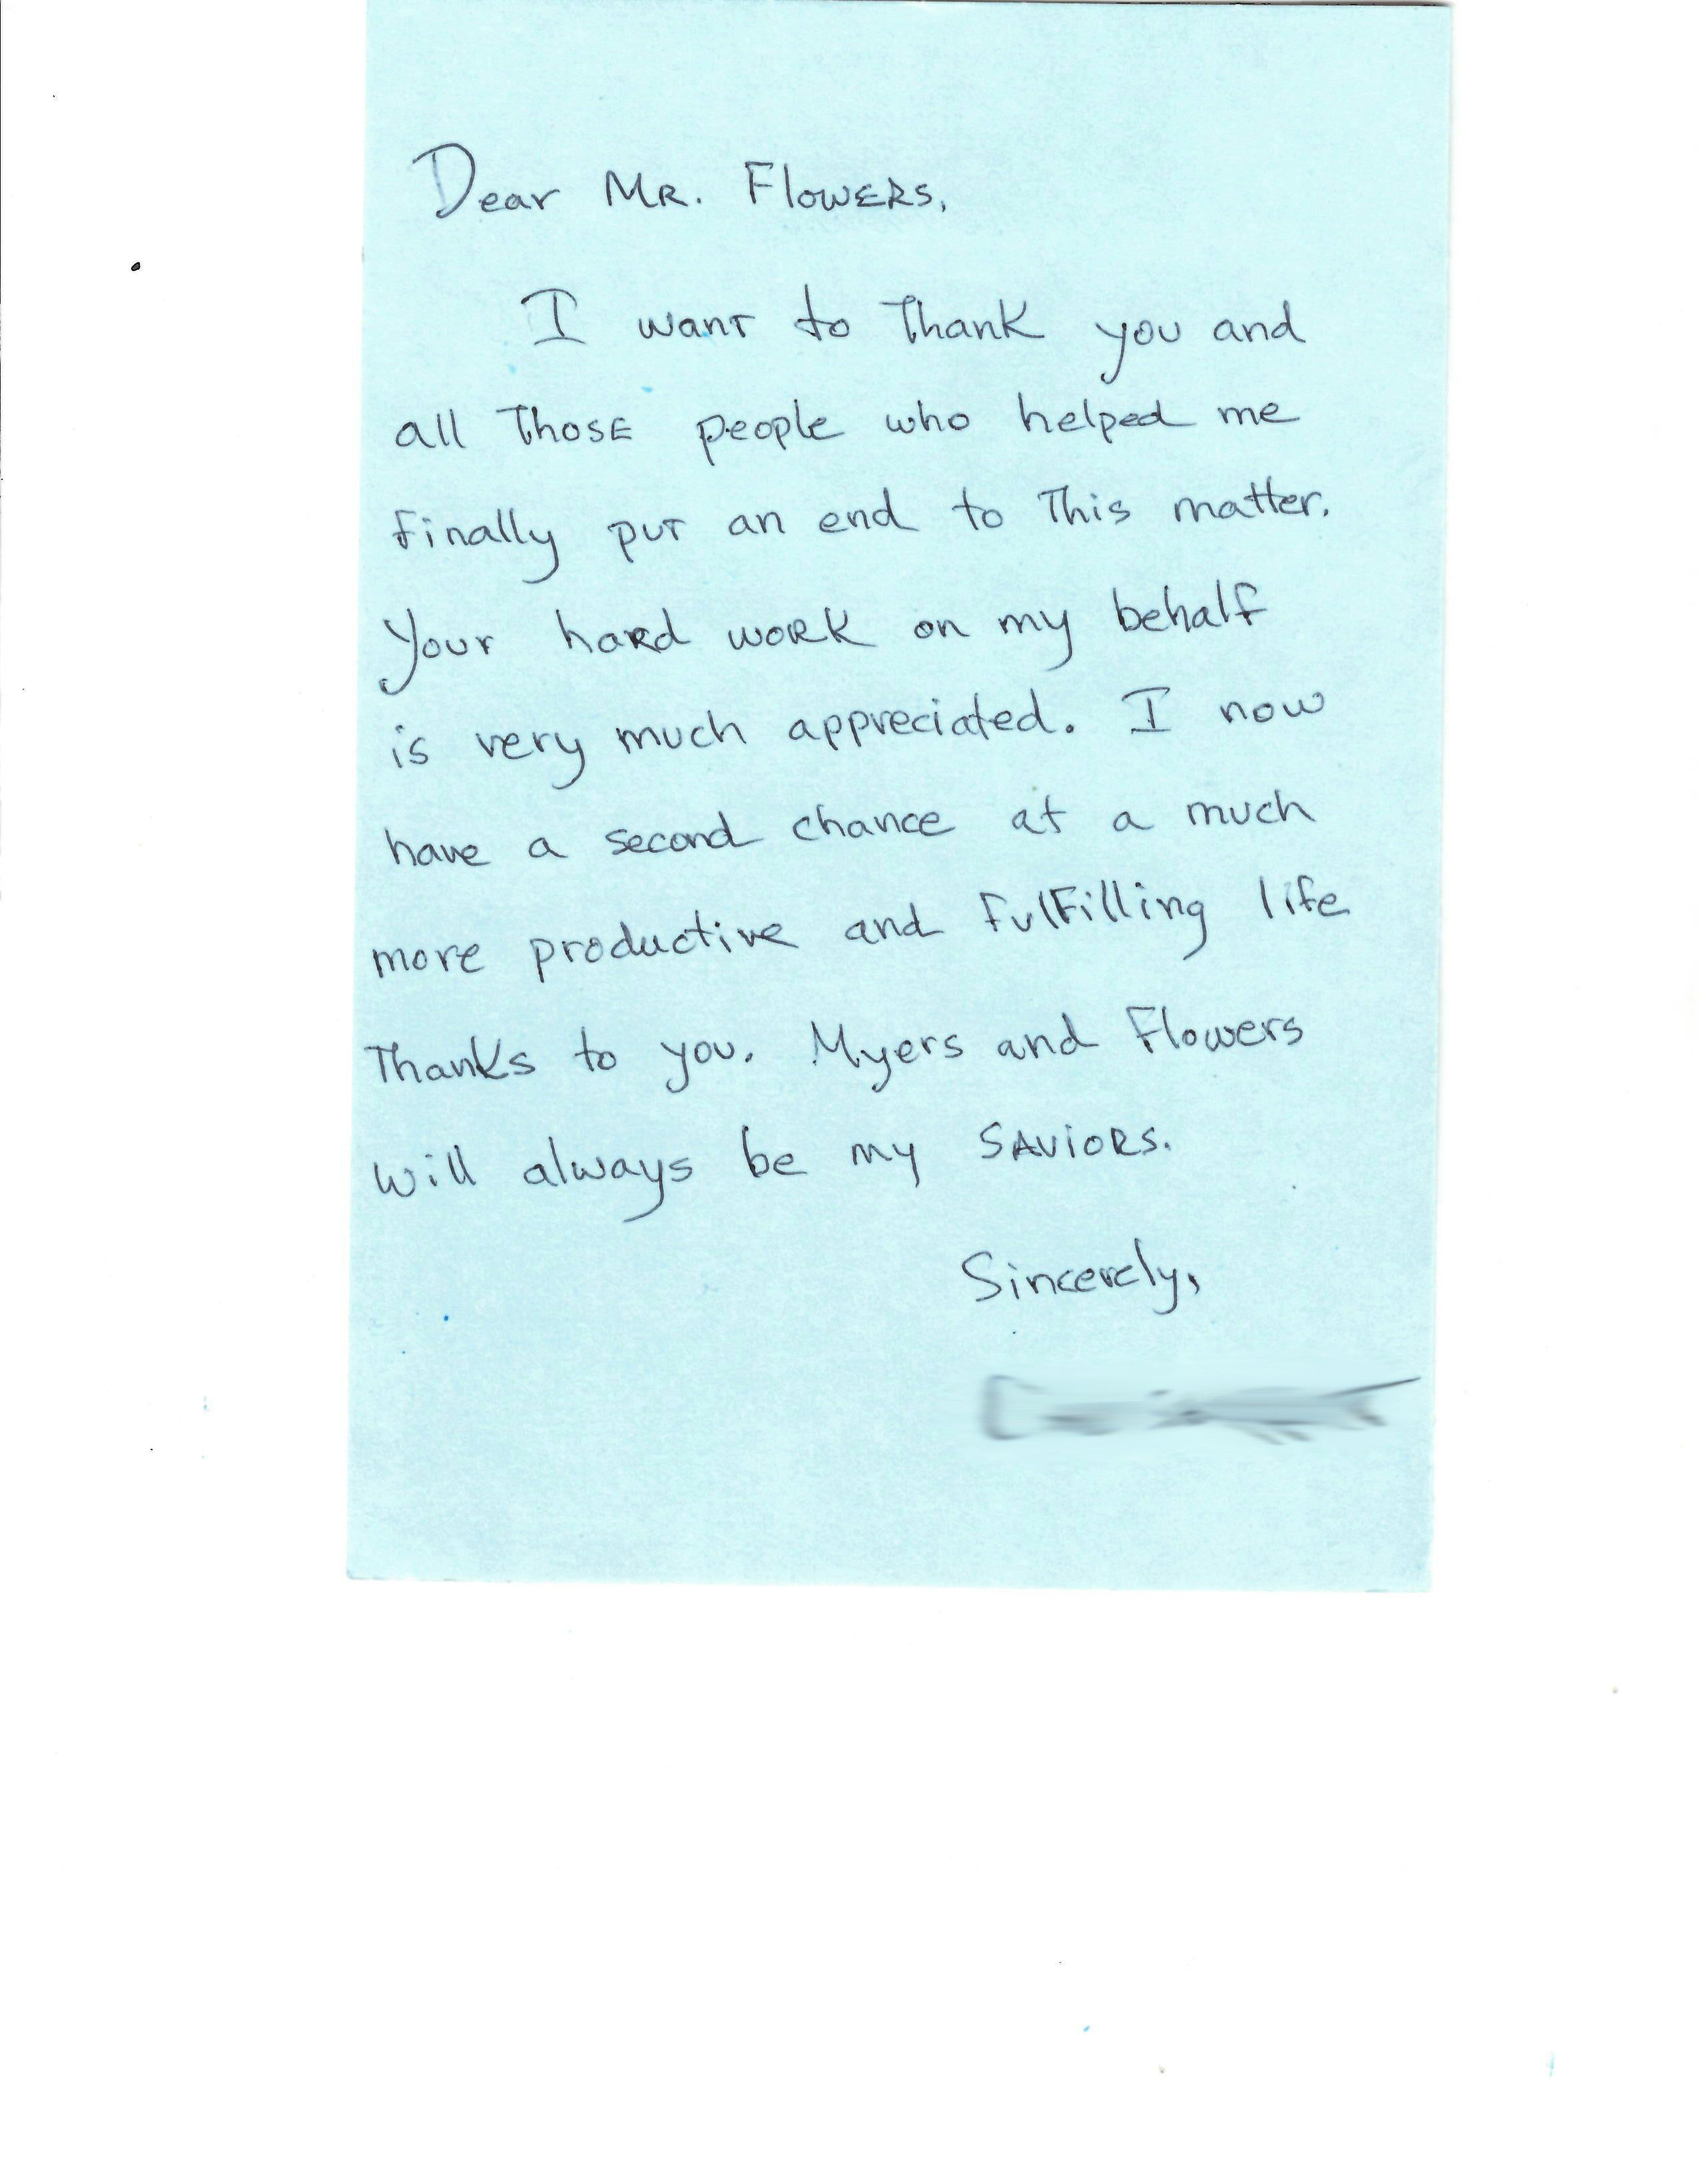 Dear Mr. Flowers,
I want to Thank you and
all Those people who helped me
finally put an end to This matter.
Your hard work on my behalf
is very much appreciated. I now
have a second chance at a much
more productive and fulfilling life
Thanks to you. Myers and Flowers
will always be my SAViORS.
Sincerely,